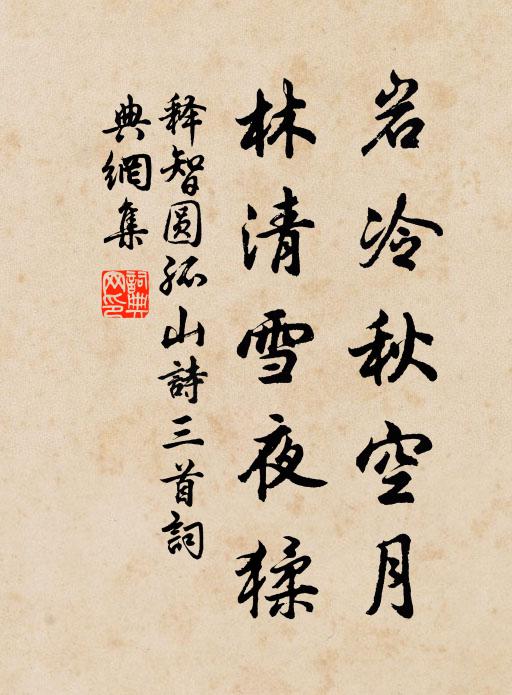 岩冷秋空月
林清雪夜猱
释智圆孤山詩三首詞
典網集
詞典
网印